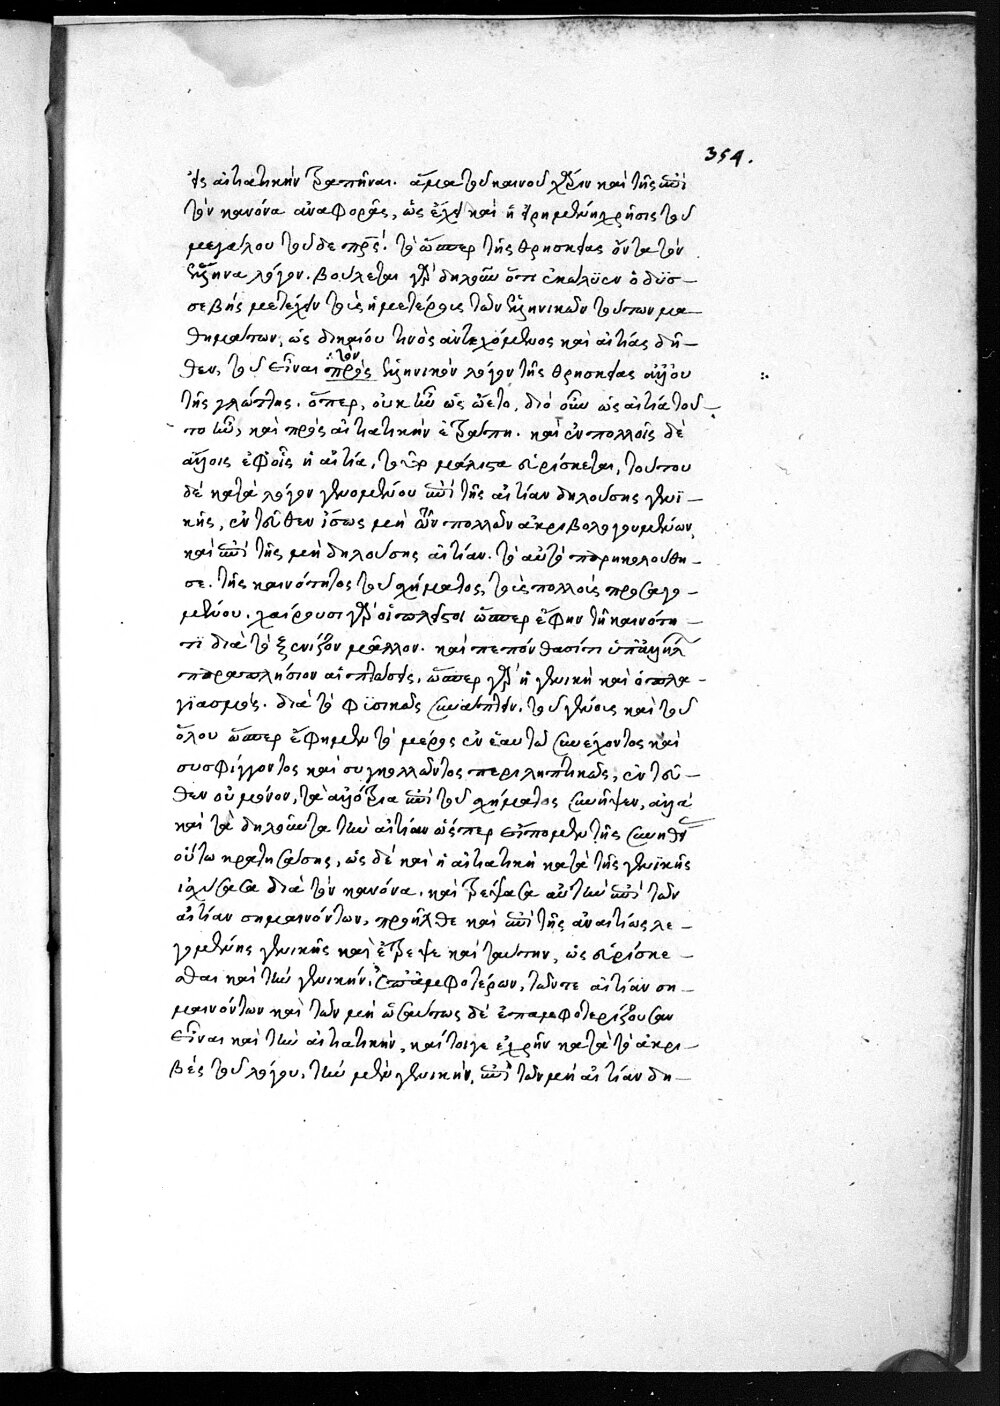 354.
αἰτιατικὴν τραπῆναι. ἅμα τοῦ καινοῦ χάριν καὶ τῆς ἐπὶ
τὸν κανόνα ἀναφορᾶς, ὡς ἔχει καὶ ἡ χρῆσις τοῦ
μεγάλου τοῦδε πρς. τὸ ὥσπερ τῆς θρησκείας ὄντα τὸν
ἕλληνα λόγον. βούλεται γὰρ δηλοῦν ὅτι ἐκώλυεν ὁ δυσ-
σεβὴς μετέχειν τοὺς ἡμετέρους τῶν ἑλληνικῶν τούτων μα-
θημάτων, ὡς δικαίου τινὸς ἀντεχόμενος καὶ αἰτίας δῆ-
θεν, τοῦ εἶναι πρὸς τὸν ἑλληνικὸν λόγον τῆς θρησκείας ἀλλ' οὐ
τῆς γλώττης. ὅπερ, οὐκ ἦν ὡς ᾤετο, διὸ οὖν ὡς αἰτία τοῦ-
το ἦν, καὶ πρὸς αἰτιατικὴν ἐτράπη. καὶ ἐν πολλοῖς δὲ
ἄλλοις ἐφ' οἷς ἡ αἰτία, μάλιστα εὑρίσκεται, τούτου
δὲ κατὰ λόγον γενομένου ἐπὶ τῆς αἰτίαν δηλούσης γενι-
κῆς, ἐντεῦθεν ἴσως μὴ τῶν πολλῶν ἀκριβολογουμένων,
καὶ ἐπὶ τῆς μὴ δηλούσης αἰτίαν. τὸ αὐτὸ παρηκολούθη-
σε. τῆς καινότητος τοῦ σχήματος, τοὺς πολλοὺς προσαγο-
μένου. χαίρουσι γὰρ οἱ πλεῖστοι ὥσπερ ἔφην τῇ καινότη-
τι διὰ τὸ ξενίζον μᾶλλον. καὶ πεπόνθασί τι
παραπλήσιον αἱ πτώσεις, ὥσπερ γὰρ ἡ γενικὴ καὶ ὁ πλα-
γιασμὸς. διὰ τὸ φυσικῶς συνάπτειν. τοῦ γένους καὶ τοῦ
ὅλου ὥσπερ ἔφημεν τὸ μέρος ἐν ἑαυτῷ συνέχοντος καὶ
συσφίγγοντος καὶ συγκολλῶντος περιληπτικῶς, ἐντεῦ-
θεν οὐ μόνον, τὰ ἀλλότρια ἐπὶ τοῦ σχήματος συνῆψεν, ἀλλὰ
καὶ τὰ δηλοῦντα τὴν αἰτίαν ὥσπερ εἴπομεν τῆς συνηθείας
οὕτω κρατησάσης, ὡς δὲ καὶ ἡ αἰτιατικὴ κατὰ τῆς γενικῆς
ἰσχύσασα διὰ τὸν κανόνα. καὶ τρέψασα αὐτὴν ἐπὶ τῶν
αἰτίαν σημαινόντων, προῆλθε καὶ ἐπὶ τῆς ἀναιτίως λε-
γομένης γενικῆς καὶ ἔτρεψε καὶ ταύτην, ὡς εὑρίσκε-
σθαι καὶ τὴν γενικήν. ἐπ' ἀμφοτέρων, τῶν τε αἰτίαν ση-
μαινόντων καὶ τῶν μὴ ὡσαύτως δὲ ἐπαμφοτερίζουσαν
εἶναι καὶ τὴν αἰτιατικὴν, καίτοιγε ἐχρῆν κατὰ τὸ ἀκρι-
βὲς τοῦ λόγου. τὴν μὲν γενικὴν, ἐπὶ τῶν μὴ αἰτίαν δη-